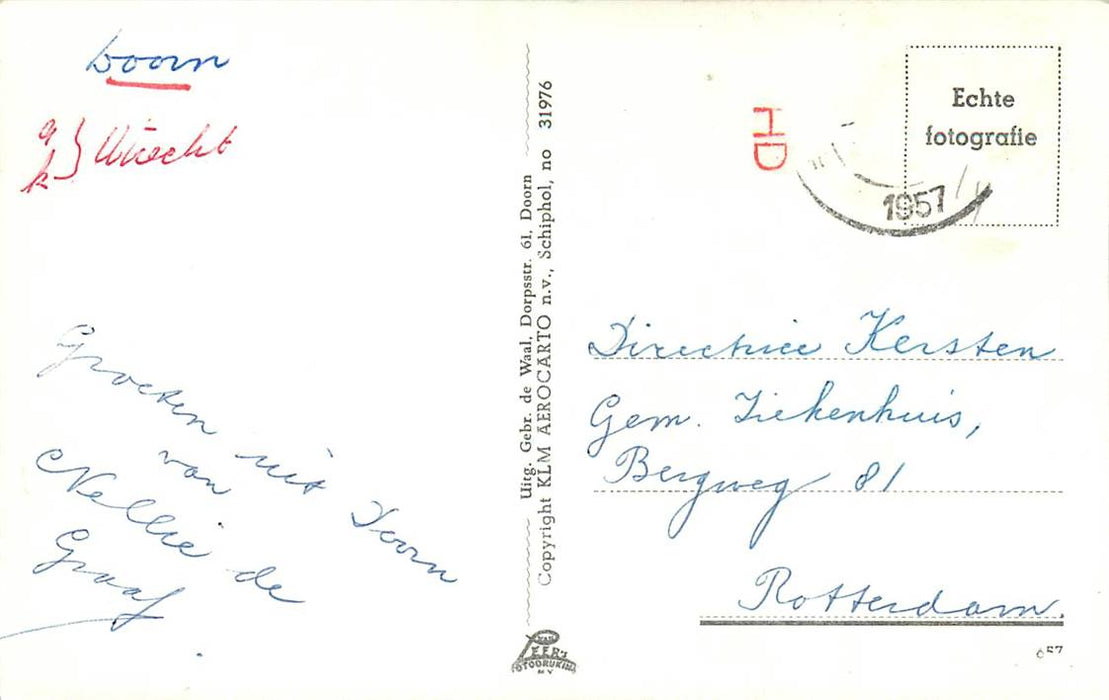 Doorn
Utrecht
Groeten uit Doorn
van
Nellie de
Graaf
Uitg. Gebr. de Waal, Dorpsstr. 61, Doorn
Copyright KLM AEROCARTO n.v., Schiphol, no 31976
VAN LEER'S
FOTODRUKIND.
N V
HD
1957
Echte
fotografie
Directrice Kersten
Gem. Ziekenhuis,
Bergweg 81
Rotterdam.